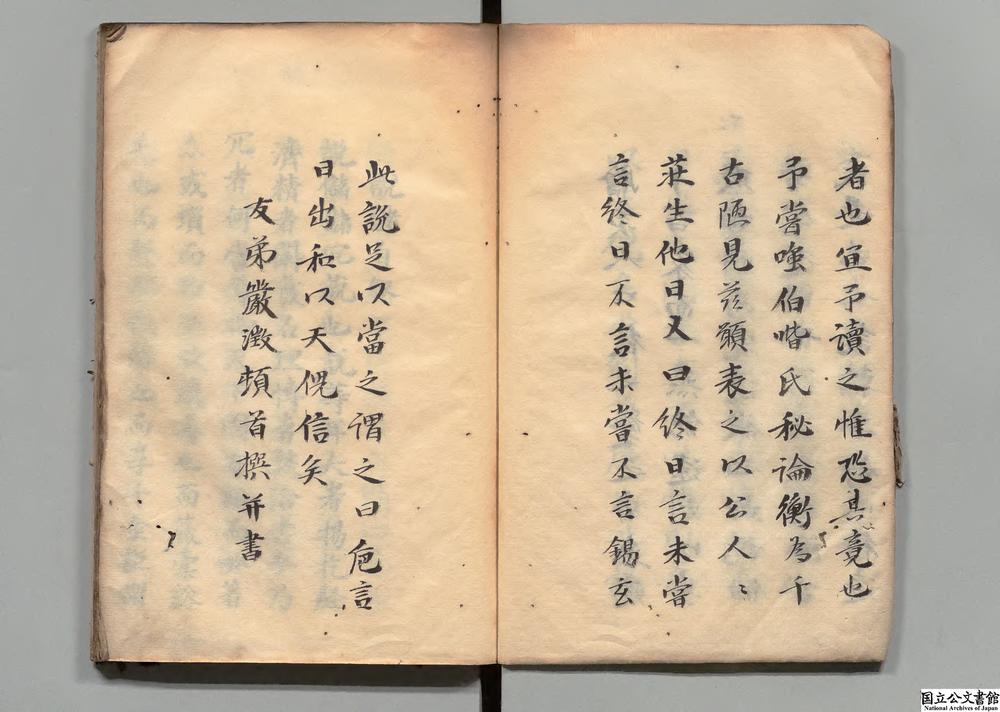 者也宜予讀之惟恐其竟也
予嘗嗤伯喈氏秘論衡為千
古陋見茲願表之以公人〻
莊生他日又曰終日言未嘗
言終日不言未嘗不言錫玄
此說足以當之謂之曰巵言
日出和以天倪信矣
友弟嚴澂頓首撰并書
国立公文書館
National Archives of Japan